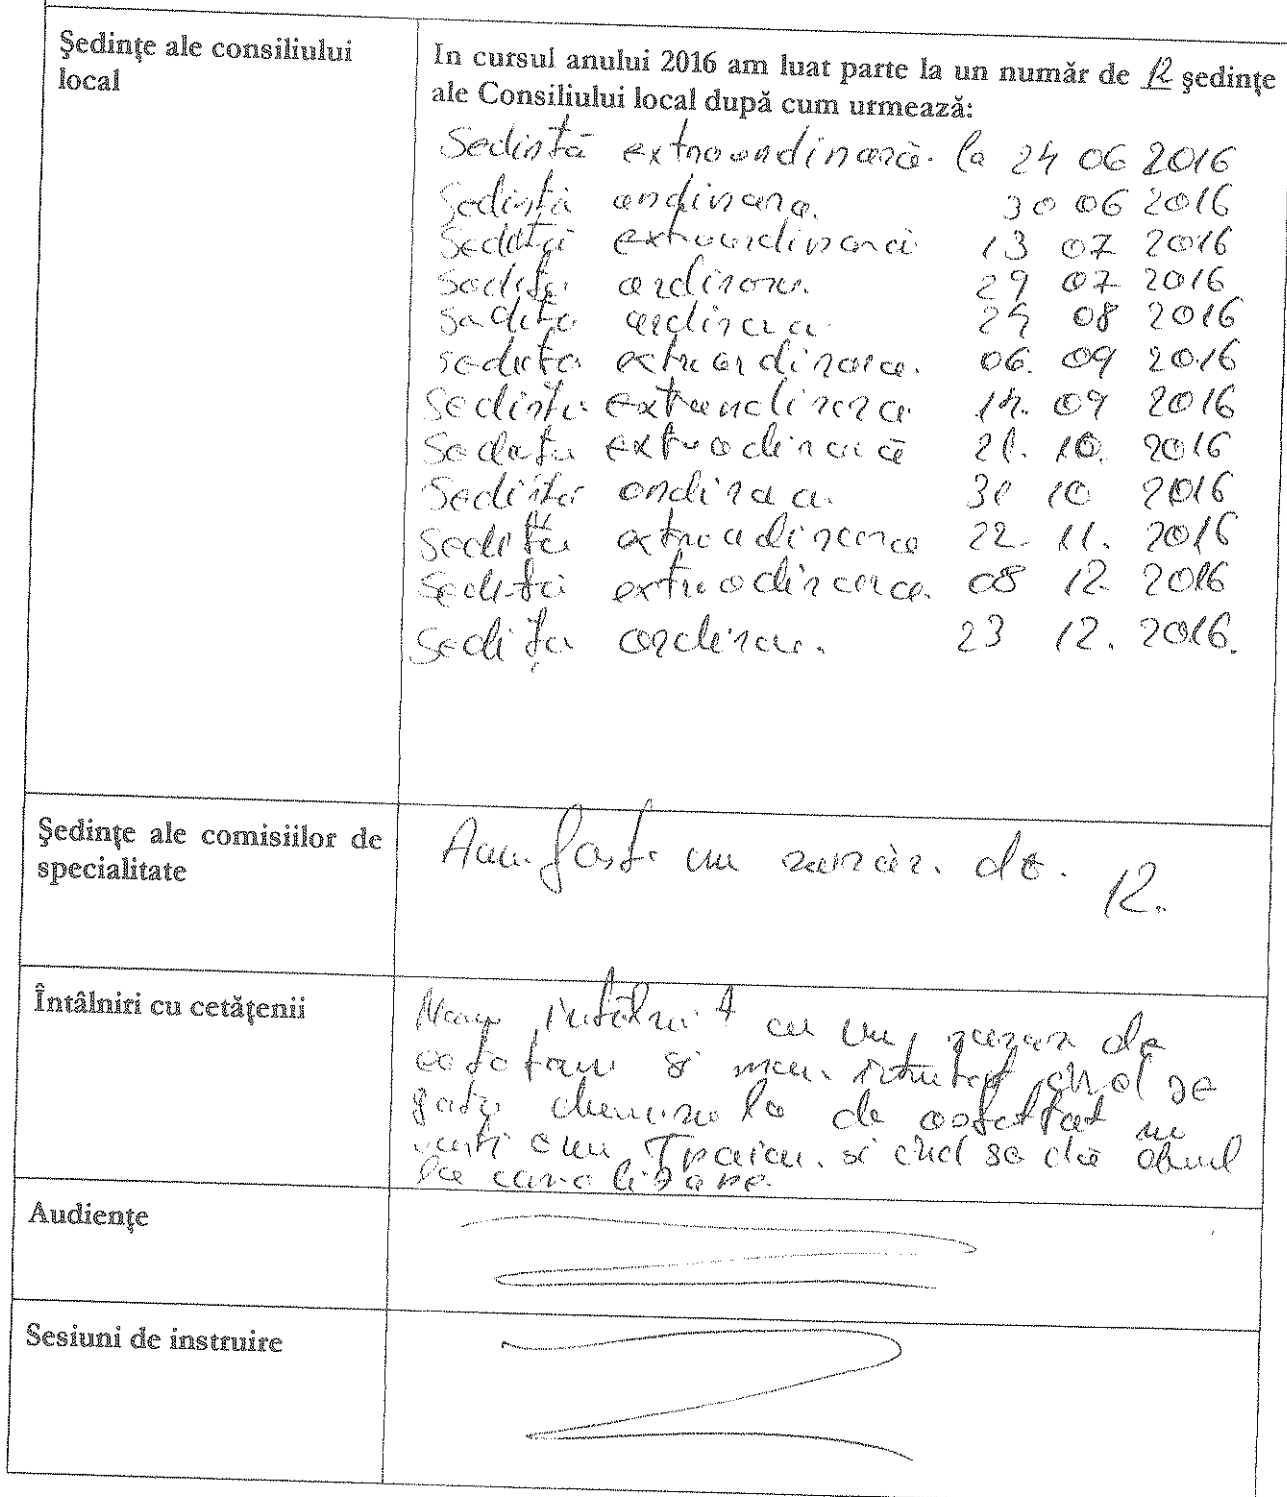 Şedinţe ale consiliului
local
In cursul anului 2016 am luat parte la un număr de 12 şedinţe
ale Consiliului local după cum urmează:
Sedintă extraordinară. la 24 06 2016
Sedintă ordinara. 30 06 2016
Sedită extraordinară 13 07 2016
Sedita ordinara. 29 07 2016
Sedita ordinara. 08 2016
Sedinta extraordinara. 06. 09 2016
Sedinta extraordinara 14. 09 2016
Sedinta extraodinară 21. 10. 2016
Sedinta ordinara. 31 10 2016
Sedita extraodinara 22. 11. 2016
Sedita extraodinara. 08 12. 2016
Sedița ordinara. 23 12. 2016.
Şedinţe ale comisiilor de
specialitate
Am fost un număr. de. 12.
Întâlniri cu cetăţenii
Mam întâlnit cu un număr de
si mau întrebat cînd se
gata la de asfaltat
Traian. si cînd se dă drumul
la canalizare.
Audienţe
Sesiuni de instruire